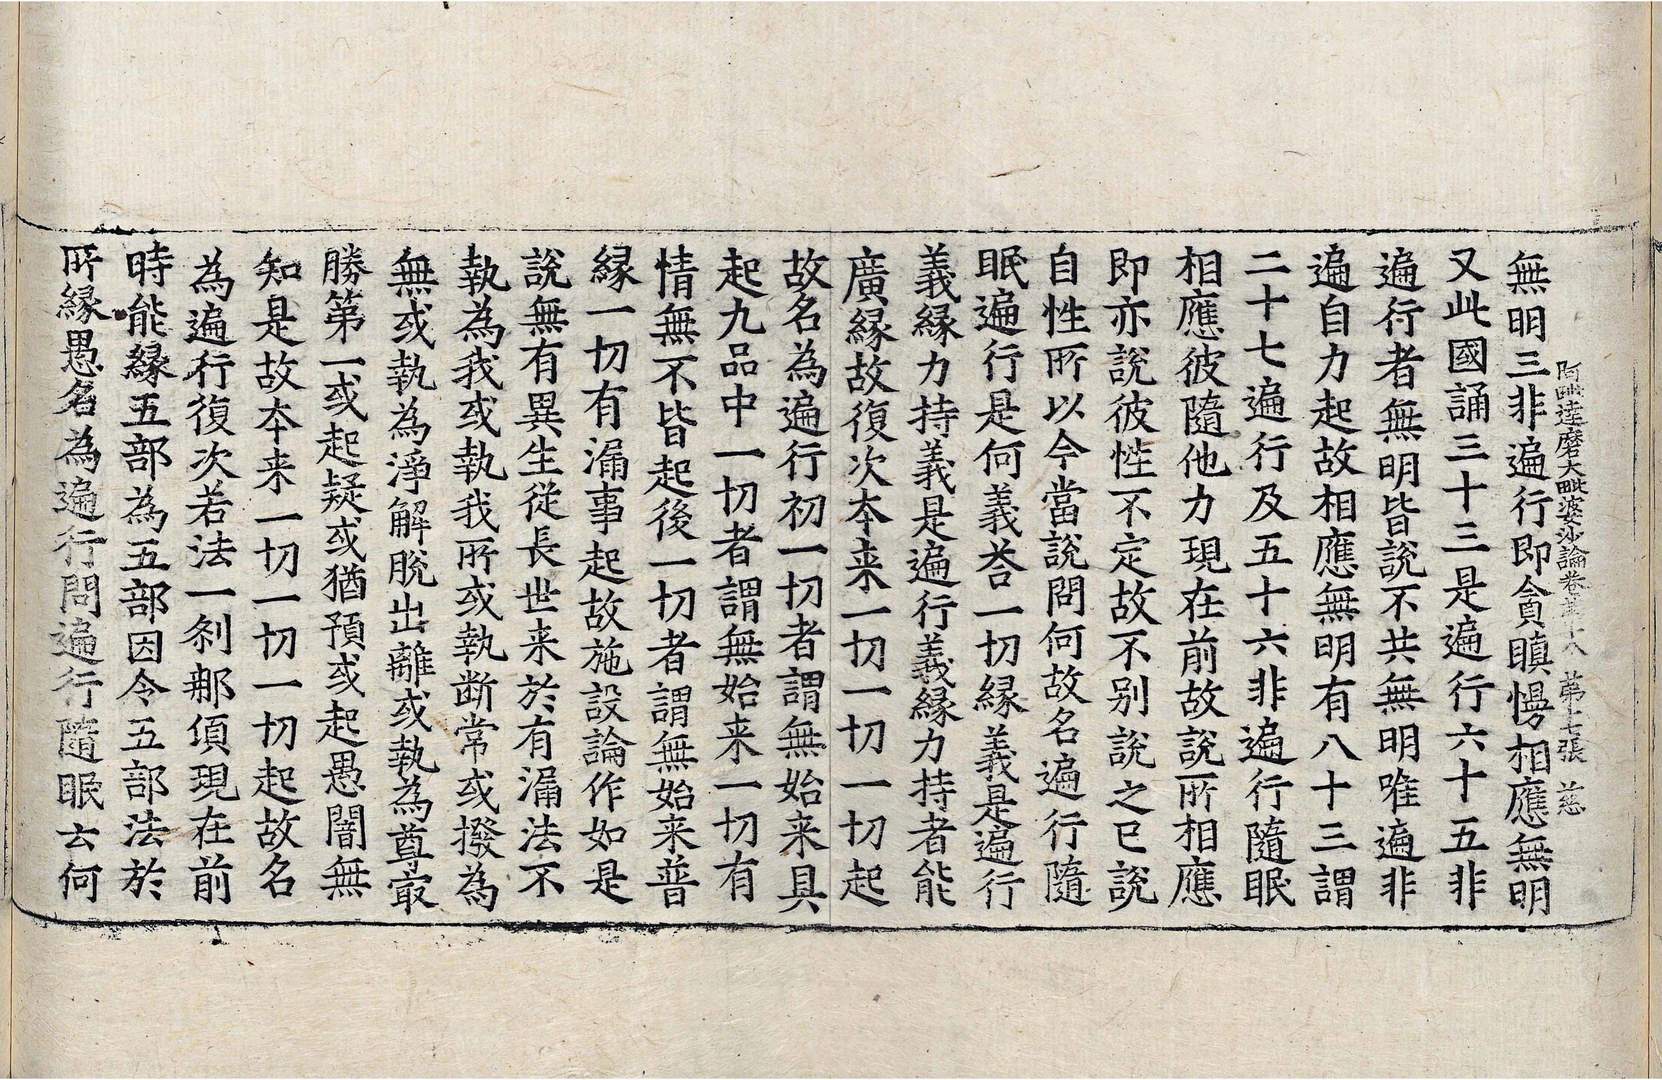 阿毗達磨大毗婆沙論卷第十八　第七張　慈
無明三非遍行即貪瞋慢相應無明
又此國誦三十三是遍行六十五非
遍行者無明皆說不共無明唯遍非
遍自力起故相應無明有八十三謂
二十七遍行及五十六非遍行隨眠
相應彼隨他力現在前故說所相應
即亦說彼性不定故不別說之已說
自性所以今當說問何故名遍行隨
眠遍行是何義荅一切緣義是遍行
義緣力持義是遍行義緣力持者能
廣緣故復次本来一切一切一切起
故名為遍行初一切者謂無始来具
起九品中一切者謂無始来一切有
情無不皆起後一切者謂無始来普
緣一切有漏事起故施設論作如是
說無有異生從長世来於有漏法不
執為我或執我所或執断常或撥為
無或執為淨解脫出離或執為尊冣
勝第一或起疑或猶預或起愚闇無
知是故本来一切一切一切起故名
為遍行復次若法一剎那頃現在前
時能緣五部為五部因令五部法於
所緣愚名為遍行問遍行隨眠云何